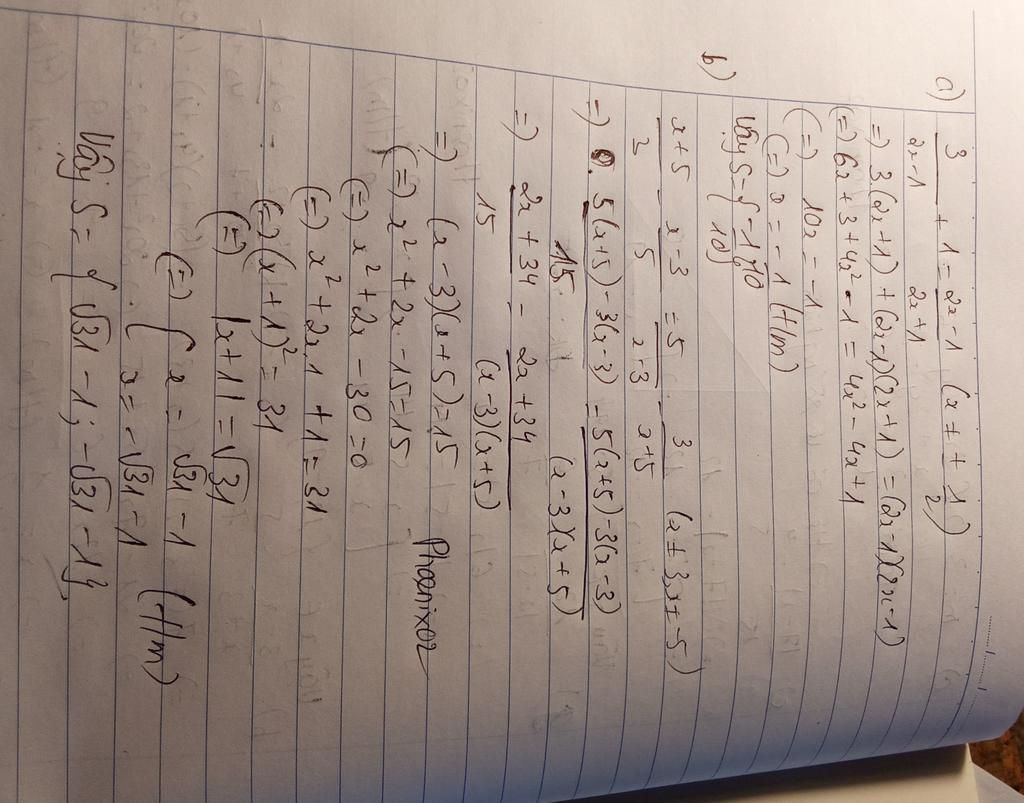 a) 3/(2x-1) + 1 = (2x-1)/(2x+1) (x ≠ ± 1/2)
=) 3(2x+1) + (2x-1)(2x+1) = (2x-1)(2x-1)
(=) 6x + 3 + 4x² - 1 = 4x² - 4x + 1
(=) 10x = -1
(=) x = -1/10 (t/m)
Vậy S = { -1/10 }
b) (x+5)/3 - (x-3)/5 = 5/(x-3) - 3/(x+5) (x ≠ 3, x ≠ -5)
=) (5(x+5) - 3(x-3))/15 = (5(x+5) - 3(x-3))/((x-3)(x+5))
=) (2x+34)/15 = (2x+34)/((x-3)(x+5))
=) (x-3)(x+5) = 15
Phoenix02
(=) x² + 2x - 15 = 15
(=) x² + 2x - 30 = 0
(=) x² + 2x + 1 = 31
(=) (x+1)² = 31
(=) |x+1| = √31
(=) { x = √31 - 1
x = -√31 - 1 (t/m)
Vậy S = { √31 - 1; -√31 - 1}